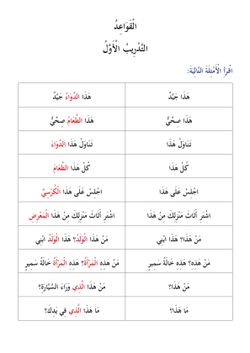 الْقَوَاعِدُ
التَّدْرِيبُ الْأَوَّلُ
اقْرَأِ الْأَمْثِلَةَ التَّالِيَةَ:
هَذَا جَيِّدٌ هَذَا الدَّوَاءُ جَيِّدٌ
هَذَا صِحِّيٌّ هَذَا الطَّعَامُ صِحِّيٌّ
تَنَاوَلْ هَذَا تَنَاوَلْ هَذَا الدَّوَاءَ
كُلْ هَذَا كُلْ هَذَا الطَّعَامَ
اجْلِسْ عَلَى هَذَا اجْلِسْ عَلَى هَذَا الْكُرْسِيِّ
اشْتَرِ أَثَاثَ مَنْزِلِكَ مِنْ هَذَا اشْتَرِ أَثَاثَ مَنْزِلِكَ مِنْ هَذَا الْمَعْرِضِ
مَنْ هَذَا؟ هَذَا ابْنِي مَنْ هَذَا الْوَلَدُ؟ هَذَا الْوَلَدُ ابْنِي
مَنْ هَذِهِ؟ هَذِهِ خَالَةُ سَمِيرٍ مَنْ هَذِهِ الْمَرْأَةُ؟ هَذِهِ الْمَرْأَةُ خَالَةُ سَمِيرٍ
مَنْ هَذَا؟ مَنْ هَذَا الَّذِي وَرَاءَ السَّيَّارَةِ؟
مَا هَذَا؟ مَا هَذَا الَّذِي فِي يَدِكَ؟